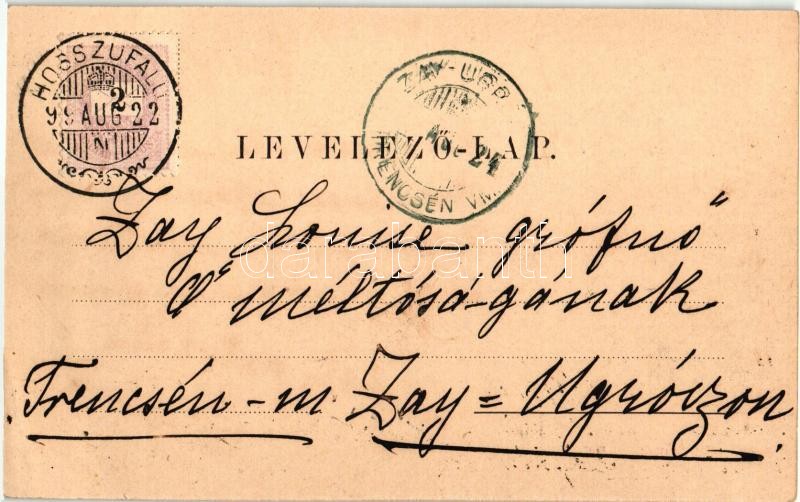 HOSSZUFALU
2
99 AUG 22
N
ZAY-UGR
24
TRENCSÉN VM.
LEVELEZŐ-LAP.
Zay Louise grófnő
Ő méltóságának
Trencsén-m Zay=Ugróczon.
darabanth